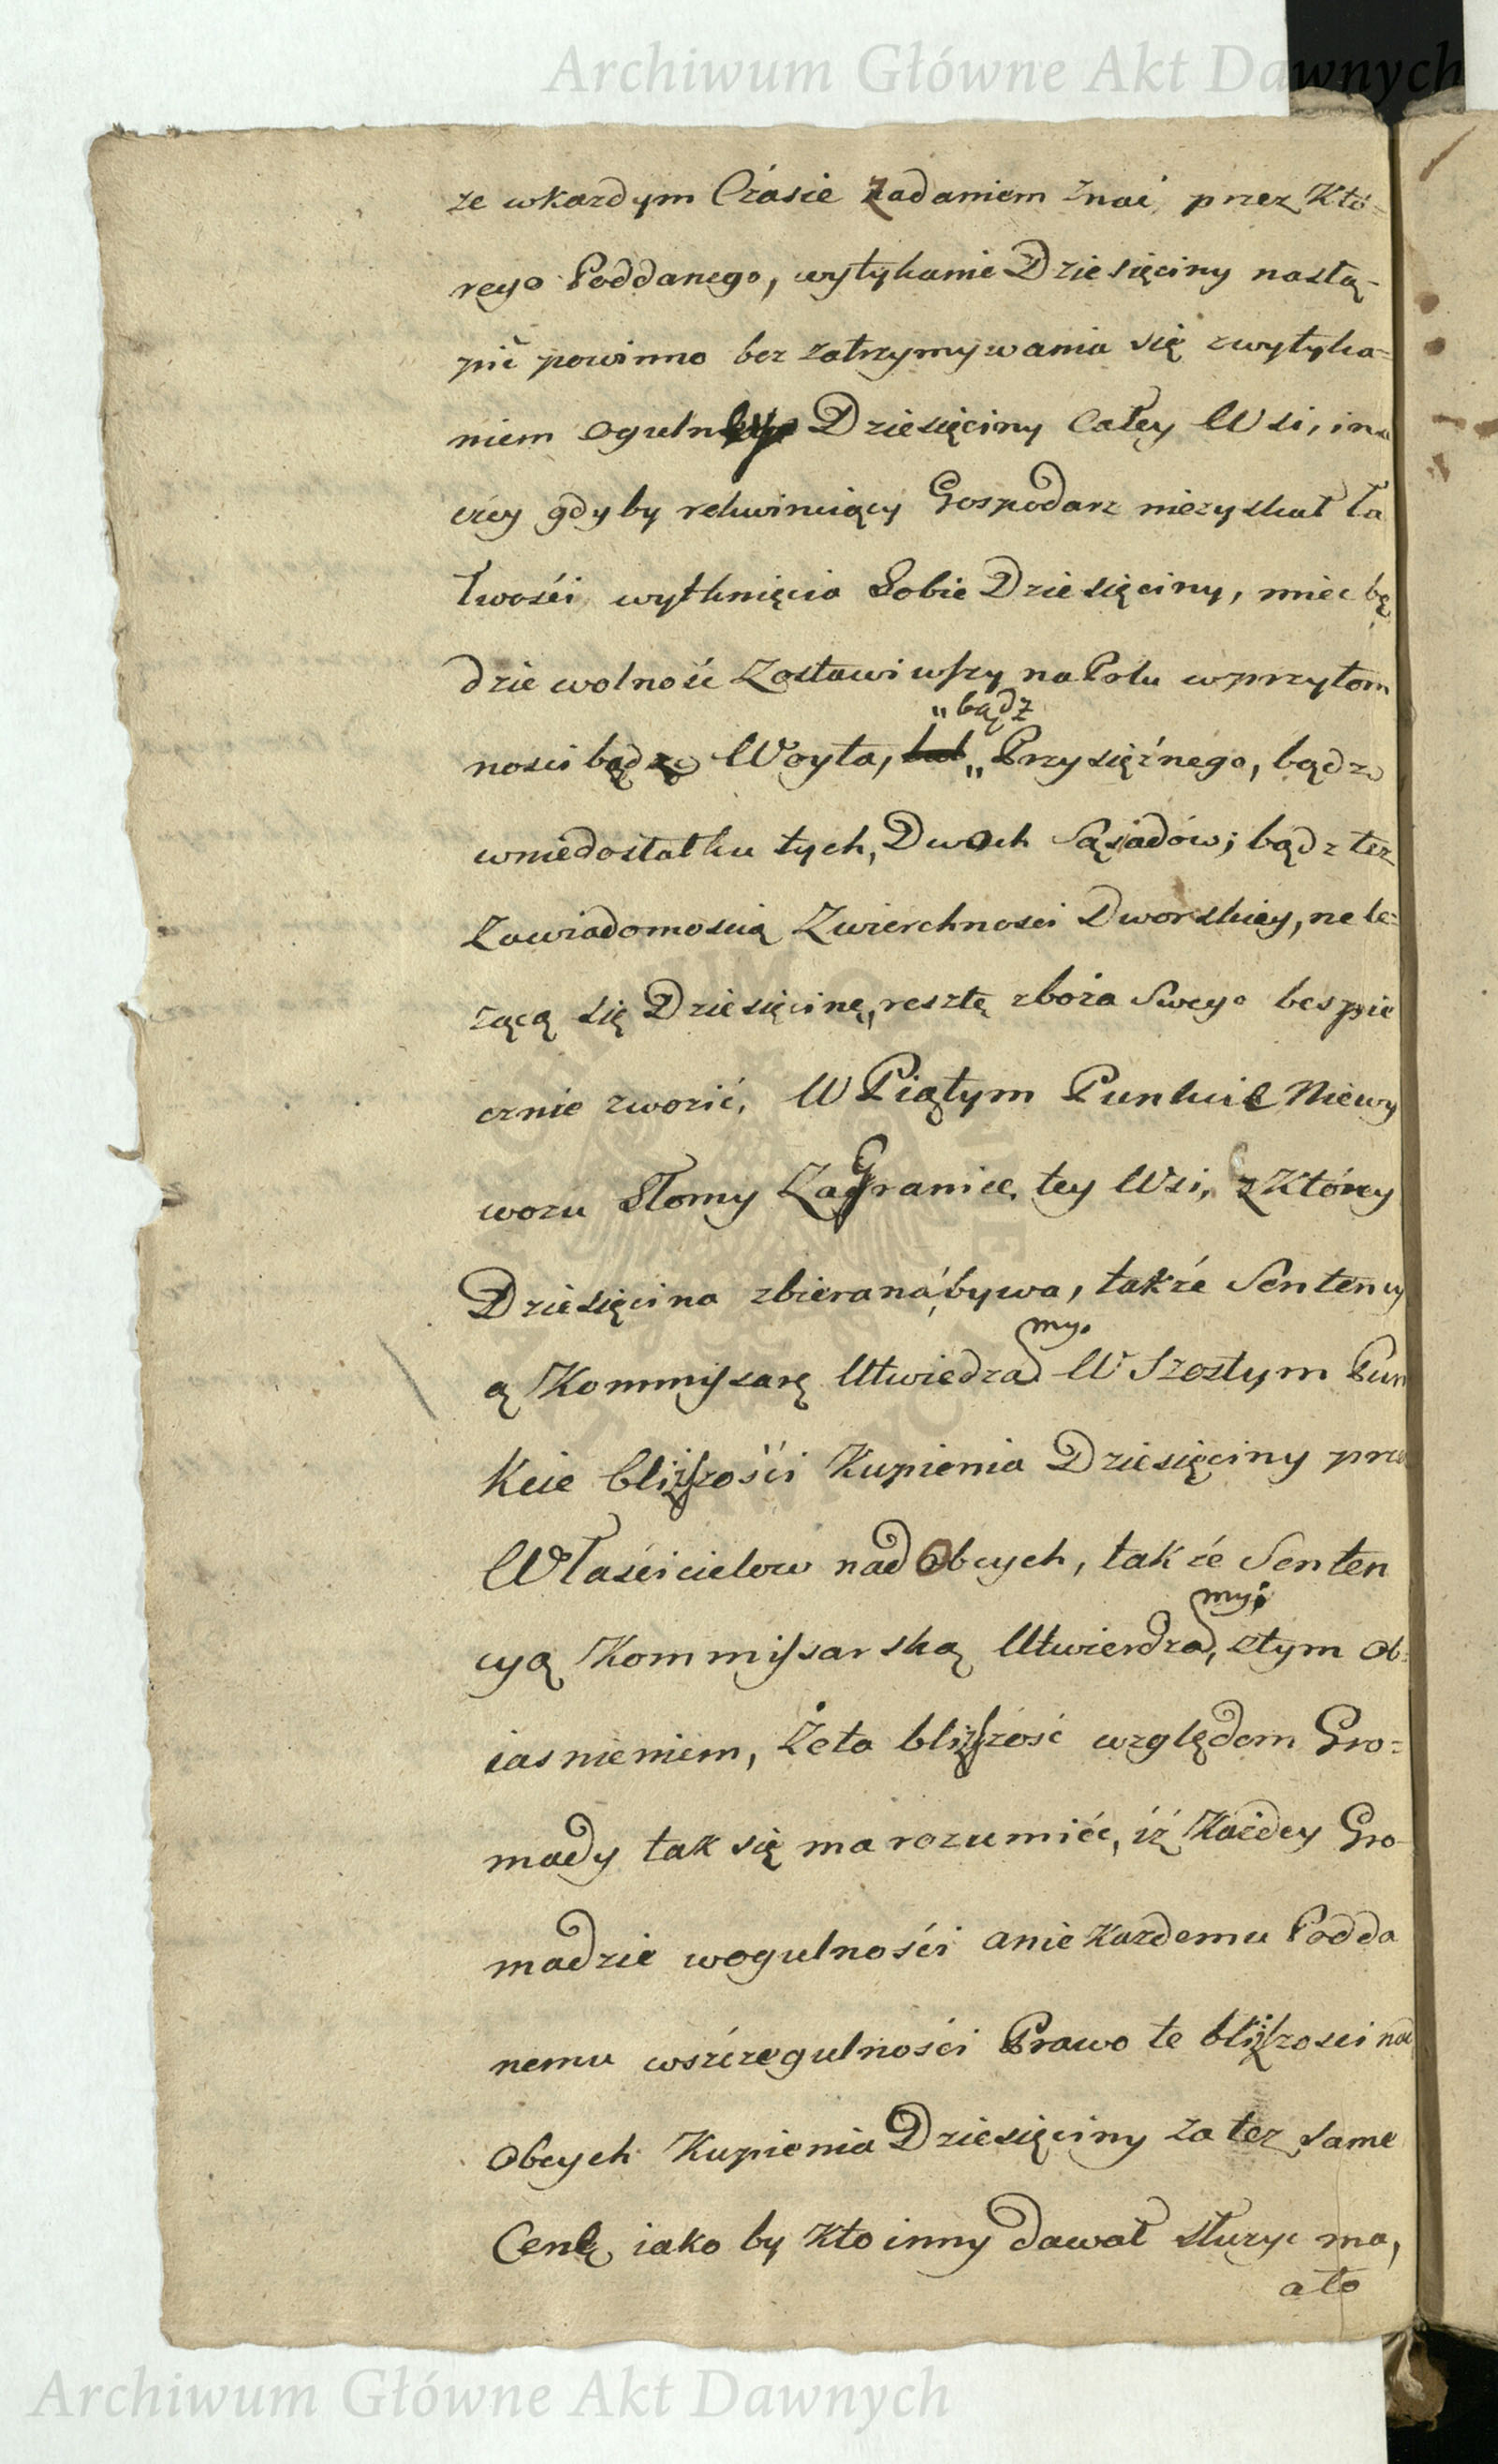 Archiwum Główne Akt Dawnych
ze wkazdym Czasie zadaniem znać przez Któ=
rego Poddanego, wytykanie Dziesięciny nastą-
pić powinno bez zatrzymywania się zwytyka=
niem oguln Dziesięciny Całey Wsi, ina
czey gdyby rekwiruiący Gospodarz niezyskał Ła
twości wytknięcia Sobie Dziesięciny, miec bę
dzie wolność Zostawiwszy na Polu wprzytom
„bądz
nosci bądz Woyta, lub „ Przysięźnego, bądz
wniedostatku tych, Dwoch Sąsiadów; bądz tez
Zawiadomoscią Zwierchnosci Dworskiey, nale=
zącą się Dziesięcinę, resztę zboża Swego bespie
cznie zwozić. W Piątym Punkcie Niewy
wozu Słomy Za Granice tey Wsi, z Którey
Dziesięcina zbieraną bywa, takźe Sentency
my.
ą Kommissarę Utwiedza W Szostym Pun
Kcie bliższości Kupienia Dziesięciny przez
Włascicielow nad Obcych, takźe Senten
my;
cyą Kommissarską Utwierdza, ztym Ob=
iasnieniem, Że ta bliższość względem Gro=
mady tak się ma rozumiéć, iż Każdey Gro-
madzie wogulności anie Kazdemu Podda
nemu wszczegulności Prawo te bliższosci nad
Obcych Kupienia Dziesięciny za tez same
Cenę iako by Kto inny dawał słuzyc ma,
ato
Archiwum Główne Akt Dawnych